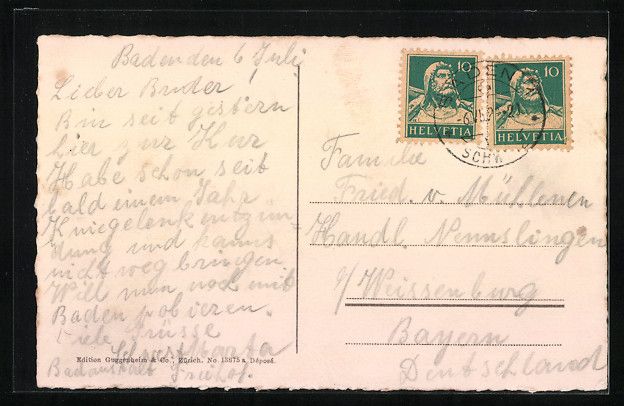 Baden den 6 Juli
Lieber Bruder!
Bin seit gestern
hier zur Kur
Habe schon seit
bald einem Jahr
Kniegelenkentzün-
dung und kanns
nicht weg bringen
Will nun noch mit
Baden probieren.
Viele Grüsse
Schw. Berta
Badanstalt Freihof.
Edition Guggenheim & Co., Zürich. No. 13675 a Déposé.
10 10
HELVETIA HELVETIA
BADEN
Familie
Fried. v. Mühlenen
Handl. Nennslingen
b/Weissenburg
Bayern
Deutschland